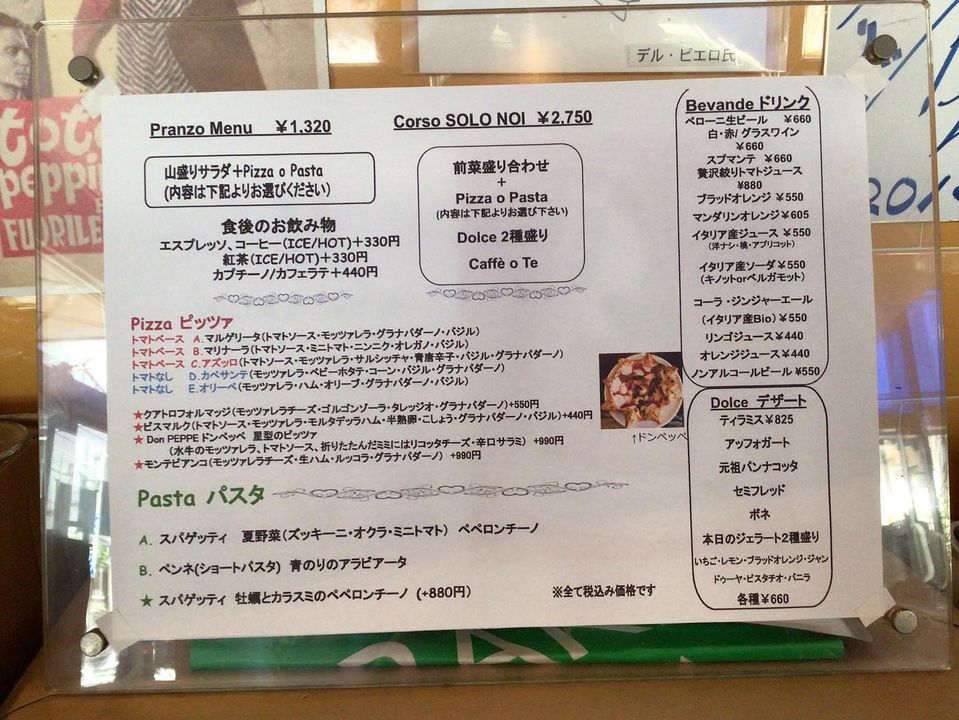 デル・ピエロ氏
toto
peppin
FUORILE
Pranzo Menu ¥1,320
山盛りサラダ+Pizza o Pasta
(内容は下記よりお選びください)
食後のお飲み物
エスプレッソ、コーヒー(ICE/HOT)+330円
紅茶(ICE/HOT)+330円
カプチーノ/カフェラテ+440円
Corso SOLO NOI ¥2,750
前菜盛り合わせ
+
Pizza o Pasta
(内容は下記よりお選び下さい)
Dolce 2種盛り
Caffè o Te
Bevande ドリンク
ペローニ生ビール ¥660
白・赤/グラスワイン
¥660
スプマンテ ¥660
贅沢絞りトマトジュース
¥880
ブラッドオレンジ ¥550
マンダリンオレンジ¥605
イタリア産ジュース ¥550
(洋ナシ・桃・アプリコット)
イタリア産ソーダ ¥550
(キノットorベルガモット)
コーラ・ジンジャーエール
(イタリア産Bio) ¥550
リンゴジュース ¥440
オレンジジュース ¥440
ノンアルコールビール ¥550
Pizza ピッツァ
トマトベース A.マルゲリータ(トマトソース・モッツァレラ・グラナパダーノ・バジル)
トマトベース B.マリナーラ(トマトソース・ミニトマト・ニンニク・オレガノ・バジル)
トマトベース C.アズッロ(トマトソース・モッツァレラ・サルシッチャ・青唐辛子・バジル・グラナパダーノ)
トマトなし D.カペサンテ(モッツァレラ・ベビーホタテ・コーン・バジル・グラナパダーノ)
トマトなし E.オリーベ(モッツァレラ・ハム・オリーブ・グラナパダーノ・バジル)
★クアトロフォルマッジ(モッツァレラチーズ・ゴルゴンゾーラ・タレッジオ・グラナパダーノ)+550円
★ビスマルク(トマトソース・モッツァレラ・モルタデッラハム・半熟卵・こしょう・グラナパダーノ・バジル)+440円
★ Don PEPPE ドンペッペ 星型のピッツァ
(水牛のモッツァレラ、トマトソース、折りたたんだミミにはリコッタチーズ・辛口サラミ) +990円
★モンテビアンコ(モッツァレラチーズ・生ハム・ルッコラ・グラナパダーノ) +990円
↑ドンペッペ
Pasta パスタ
A. スパゲッティ 夏野菜(ズッキーニ・オクラ・ミニトマト) ペペロンチーノ
B. ペンネ(ショートパスタ) 青のりのアラビアータ
★ スパゲッティ 牡蠣とカラスミのペペロンチーノ (+880円)
※全て税込み価格です
Dolce デザート
ティラミス¥825
アッフォガート
元祖パンナコッタ
セミフレッド
ボネ
本日のジェラート2種盛り
いちご・レモン・ブラッドオレンジ・ジャン
ドゥーヤ・ピスタチオ・バニラ
各種¥660